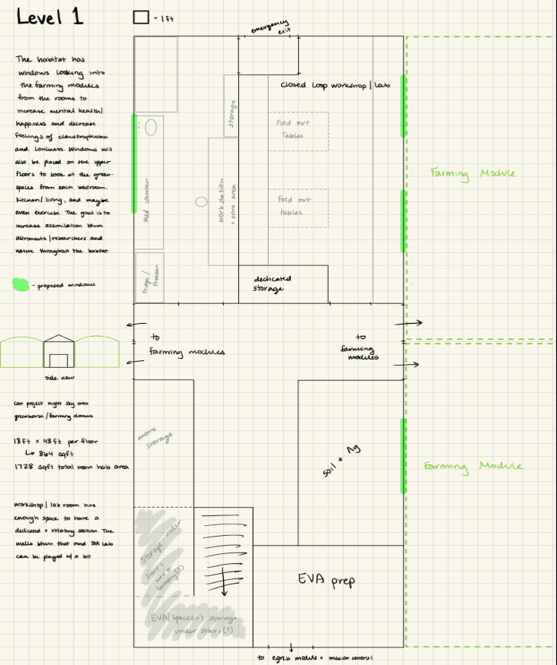 Level 1
- 1ft
emergency
exit
The habitat has
windows looking into
the farming modules
from the rooms to
increase mental health/
happiness and decrease
feelings of claustrophobia
and loneliness. Windows will
also be placed on the upper
floors to look at the green-
spaces from each bedroom,
kitchen/living, and maybe
even exercise. The goal is to
increase assimilation btwn
astronauts/researchers and
native throughout the habitat.
- proposed windows
side view
can project night sky into
greenhouse/farming domes
18ft x 48ft per floor
↳ 864 sqft
1728 sqft total main hab area
workshop/lab room has
enough space to have a
dedicated + rotating section. The
walls btwn that and lab
can be played w/ a bit
closed loop workshop/lab
storage
Fold out
Tables
Fold out
tables
med counter
Work station
+ extra area
Fridge/
Freezer
dedicated
storage
Farming Module
to
farming modules
to
farming
modules
more
storage
soil + Ag
Farming Module
EVA prep
EVA/spacesuit storage
under stairs(?)
to egress module + mission control